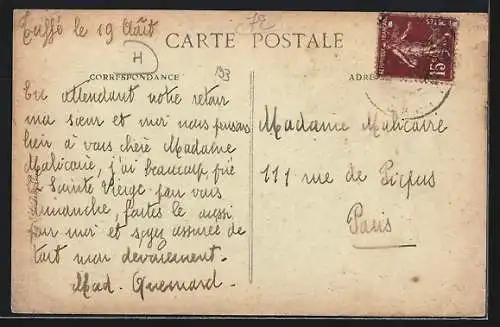 Tuffé le 19 Août
72
H
CARTE POSTALE
CORRESPONDANCE
193
ADRES
15c
En attendant notre retour
ma sœur et moi nous pensons
bien à vous chère Madame
Malicaire, j'ai beaucoup prié
la Sainte Vierge pour vous
dimanche, faites le aussi
pour moi et soyez assurée de
tout mon dévouement.
Mad. Quemard.
Madame Malicaire
111 rue de Picpus
Paris